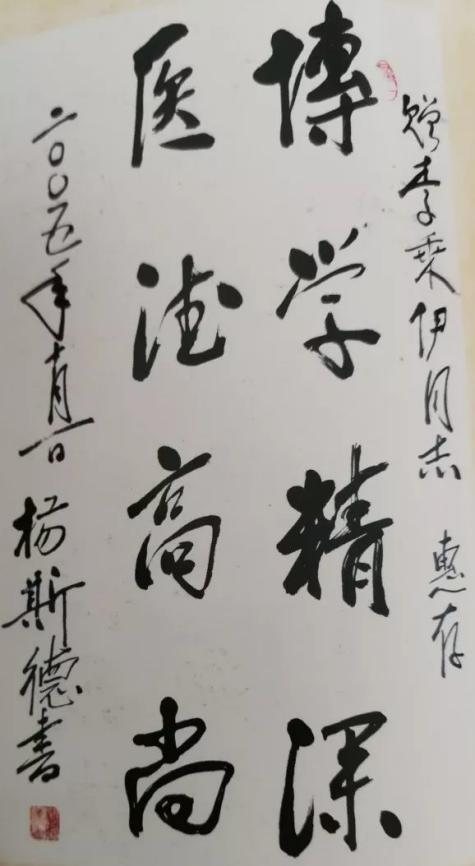 赠李秉伊同志 惠存
博学精深
医德高尚
二〇〇五年十月一日 杨斯德书